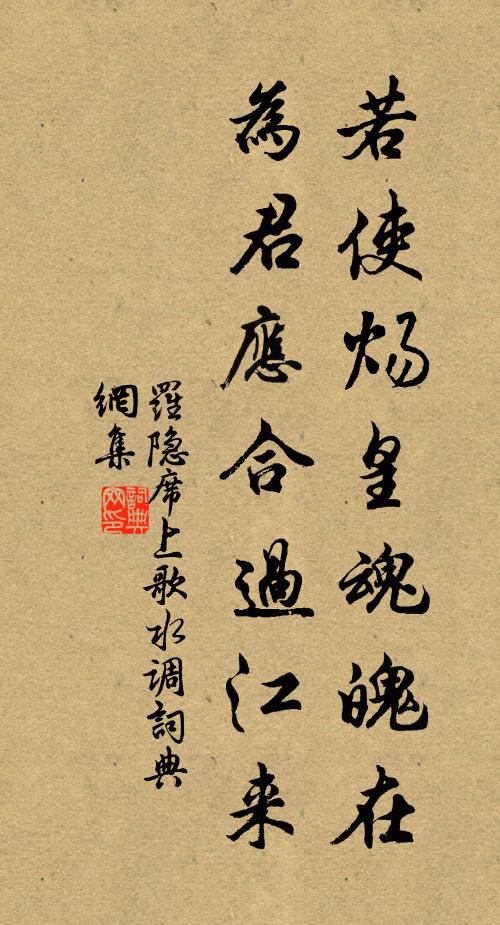 若使炀皇魂魄在
為君應合過江来
羅隐席上歌水调詞典
網集
詞典
网印